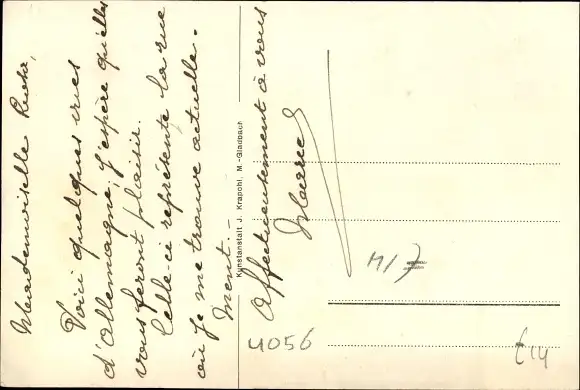 Mademoiselle
Voici quelques vues
d'Allemagne, J'espère qu'elles
vous feront plaisir.
Celle-ci représente la rue
où je me trouve actuelle-
ment. -
Affectueusement à vous
Kunstanstalt J. Krapohl, M.-Gladbach
M/7
4056
£14